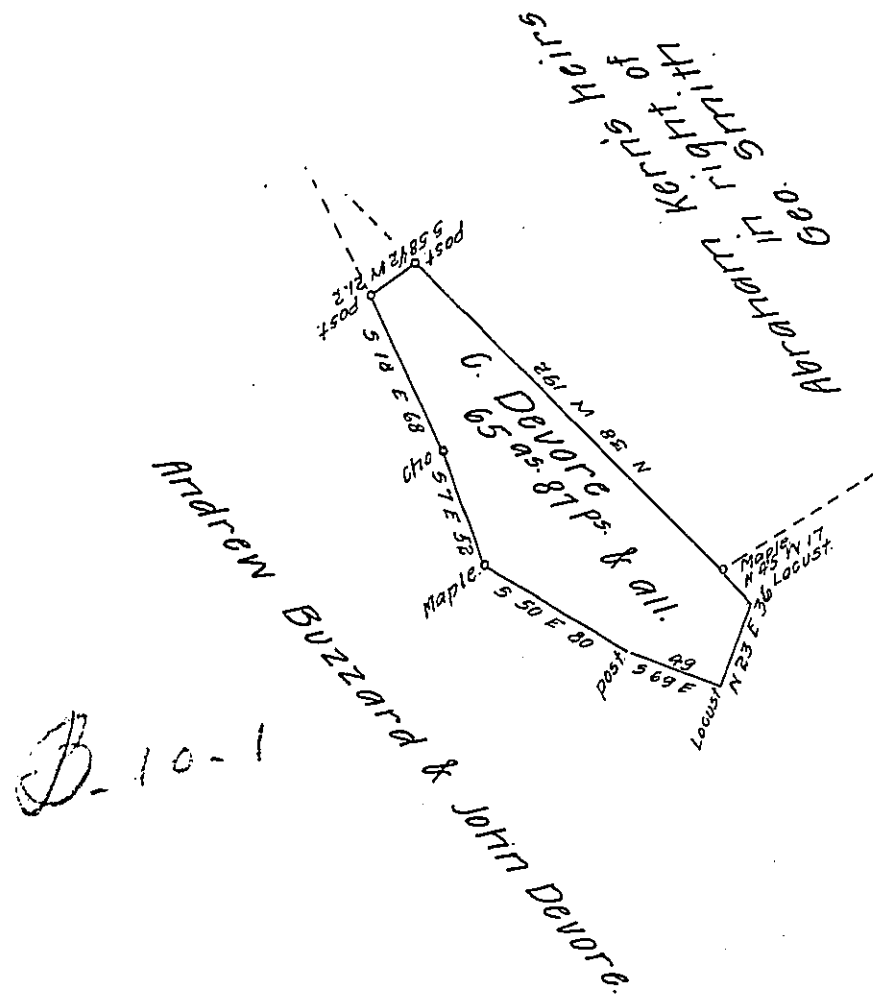 Abraham Kern's heirs
in right of
Geo. Smith
post
S 58 1/2 W 21.2
post.
S 18 E 68
cho
S 7 E 52
Maple.
S 50 E 80
post.
S 69 E 49
Locust
N 23 E 36
Locust.
N 45 W 17
Maple.
N 38 W 192
J. Devore
65 as. 87 ps. & all.
Andrew Buzzard & John Devore.
B-10-1